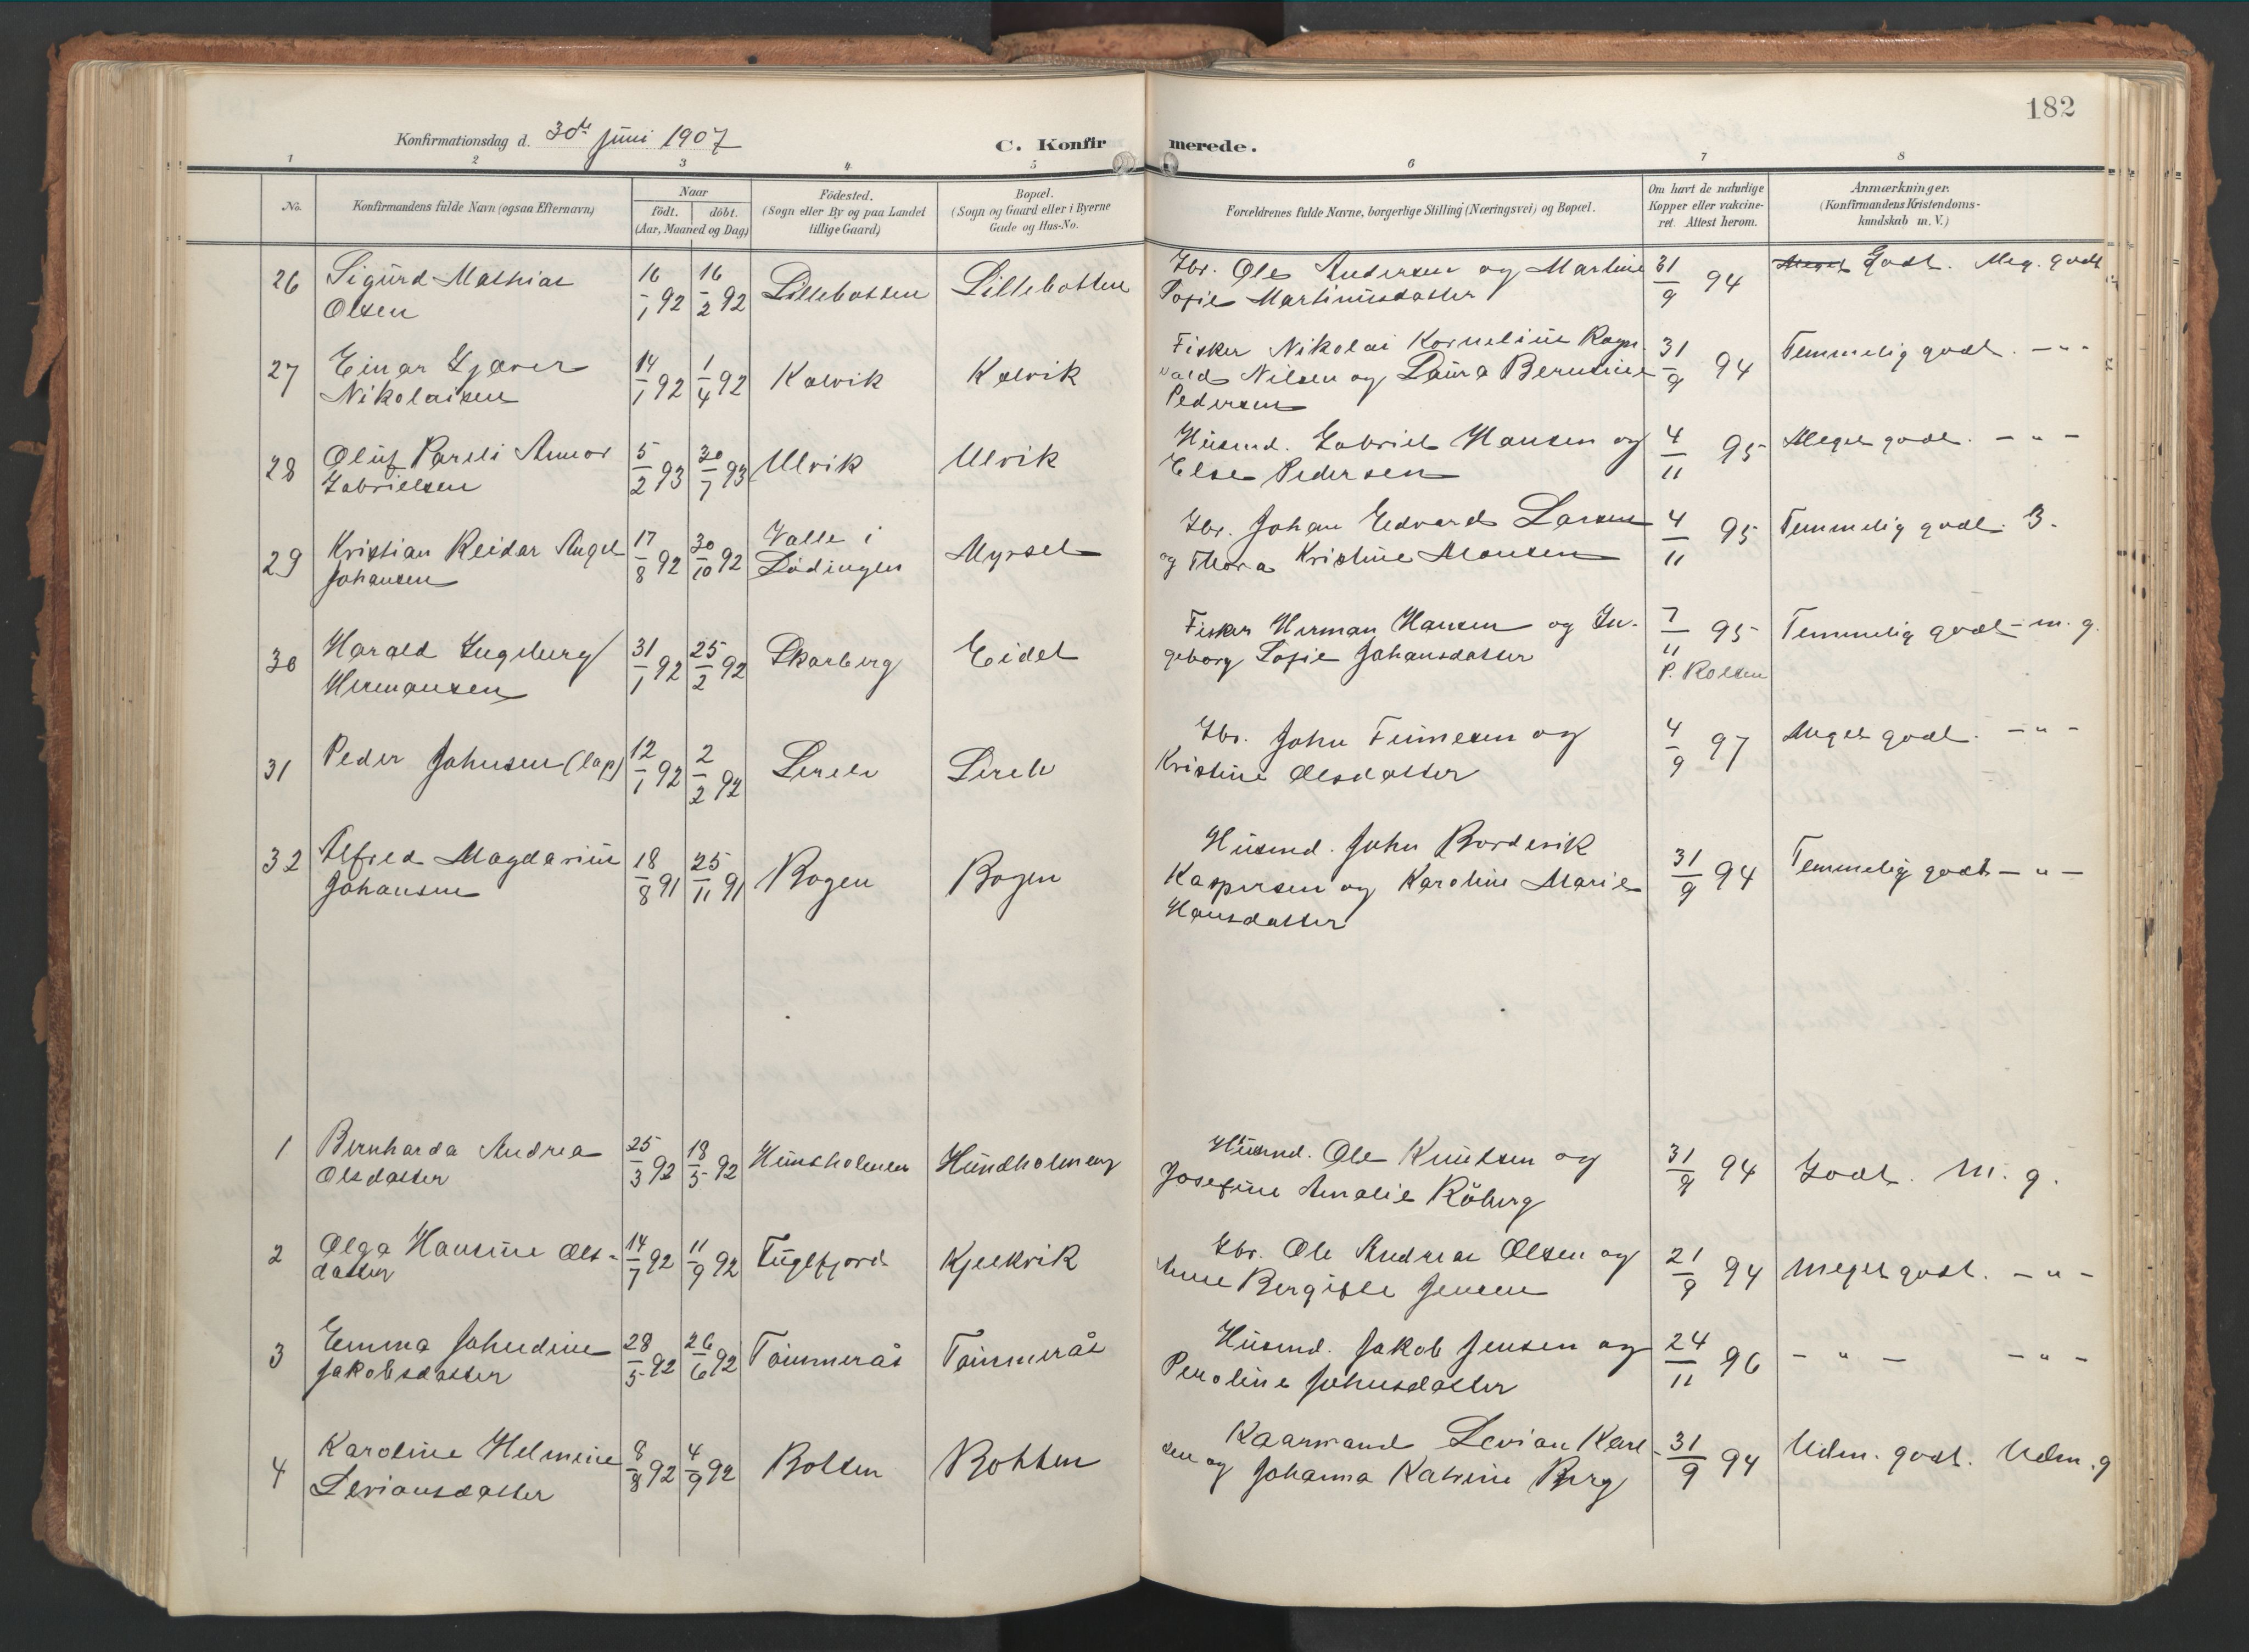 182
Konfirmationsdag d. 30de juni 1907
C. Konfirmerede.
1 2 3 4 5 6 7 8
No.
Konfirmandens fulde Navn (ogsaa Efternavn)
Naar
födt. döbt.
(Aar, Maaned og Dag)
Födested.
(Sogn eller By og paa Landet
tillige Gaard)
Bopæl.
(Sogn og Gaard eller i Byerne
Gade og Hus-No.
Forældrenes fulde Navne, borgerlige Stilling (Næringsvei) og Bopæl.
Om havt de naturlige
Kopper eller vakcine-
ret. Attest herom.
Anmærkninger.
(Konfirmandens Kristendoms-
kundskab m. V.)
26 Sigurd Mathias
Olsen
16/1 92 16/2 92 Lillebotten Lillebotten
Gbr. Ole Andersen og Martine
Sofie Martinusdatter
31/9 94 Godt. Meg. godt
27 Einar Gjæver
Nikolaisen
14/1 92 1/4 92 Kalvik Kalvik
Fisker Nikolai Kornelius Ragn-
vald Nilsen og Laura Berntine
Pedersen
31/9 94 Temmelig godt. - " -
28 Oluf Pareli Annor
Gabrielsen
5/2 93 30/7 93 Ulvik Ulvik
Husmd. Gabriel Hansen og
Else Pedersen
4/11 95 Meget godt. - " -
29 Kristian Reidar Angel
Johansen
17/8 92 30/10 92 Valle i
Lødingen Myrset
Gbr. Johan Edvard Larsen
og Thora Kristine Monsen
4/11 95 Temmelig godt. B.
30 Harald Ingeberg
Hermansen
31/1 92 25/2 92 Skarberg Eidet
Fisker Herman Hansen og In-
geborg Sofie Johansdatter
7/11 95
P. Rolsen
Temmelig godt - m. g.
31 Peder Johnsen (lap)
12/1 92 2/2 92
Gbr. John Finnesen og
Kristine Olsdatter
4/9 97 Meget godt. - " -
32 Alfred Magdarius
Johansen
18/8 91 25/11 91 Bogen Bogen
Husmd. John Bordevik
Kaspersen og Karoline Marie
Hansdatter
31/9 94 Temmelig godt - " -
1 Bernharda Andrea
Olsdatter
25/3 92 18/5 92 Hundholmen Hundholmen
Husmd. Ole Knutsen og
Josefine Amalie Råberg
31/9 94 Godt. M. g.
2 Olga Hansine Ols-
datter
14/7 92 11/9 92 Fuglfjord Kjelkvik
Gbr. Ole Andreas Olsen og
Anne Bergitte Jensen
21/9 94 Meget godt. - " -
3 Emma Johndine
Jakobsdatter
28/5 92 26/6 92 Tømmerås Tømmerås
Husmd. Jakob Jensen og
Peroline Johnsdatter
24/11 96 - " - - " -
4 Karoline Helmine
Leviansdatter
8/8 92 4/9 92 Botten Botten
Kaarmand Levian Karl-
sen og Johanna Katrine Berg
31/9 94 Udm. godt. Udm. g